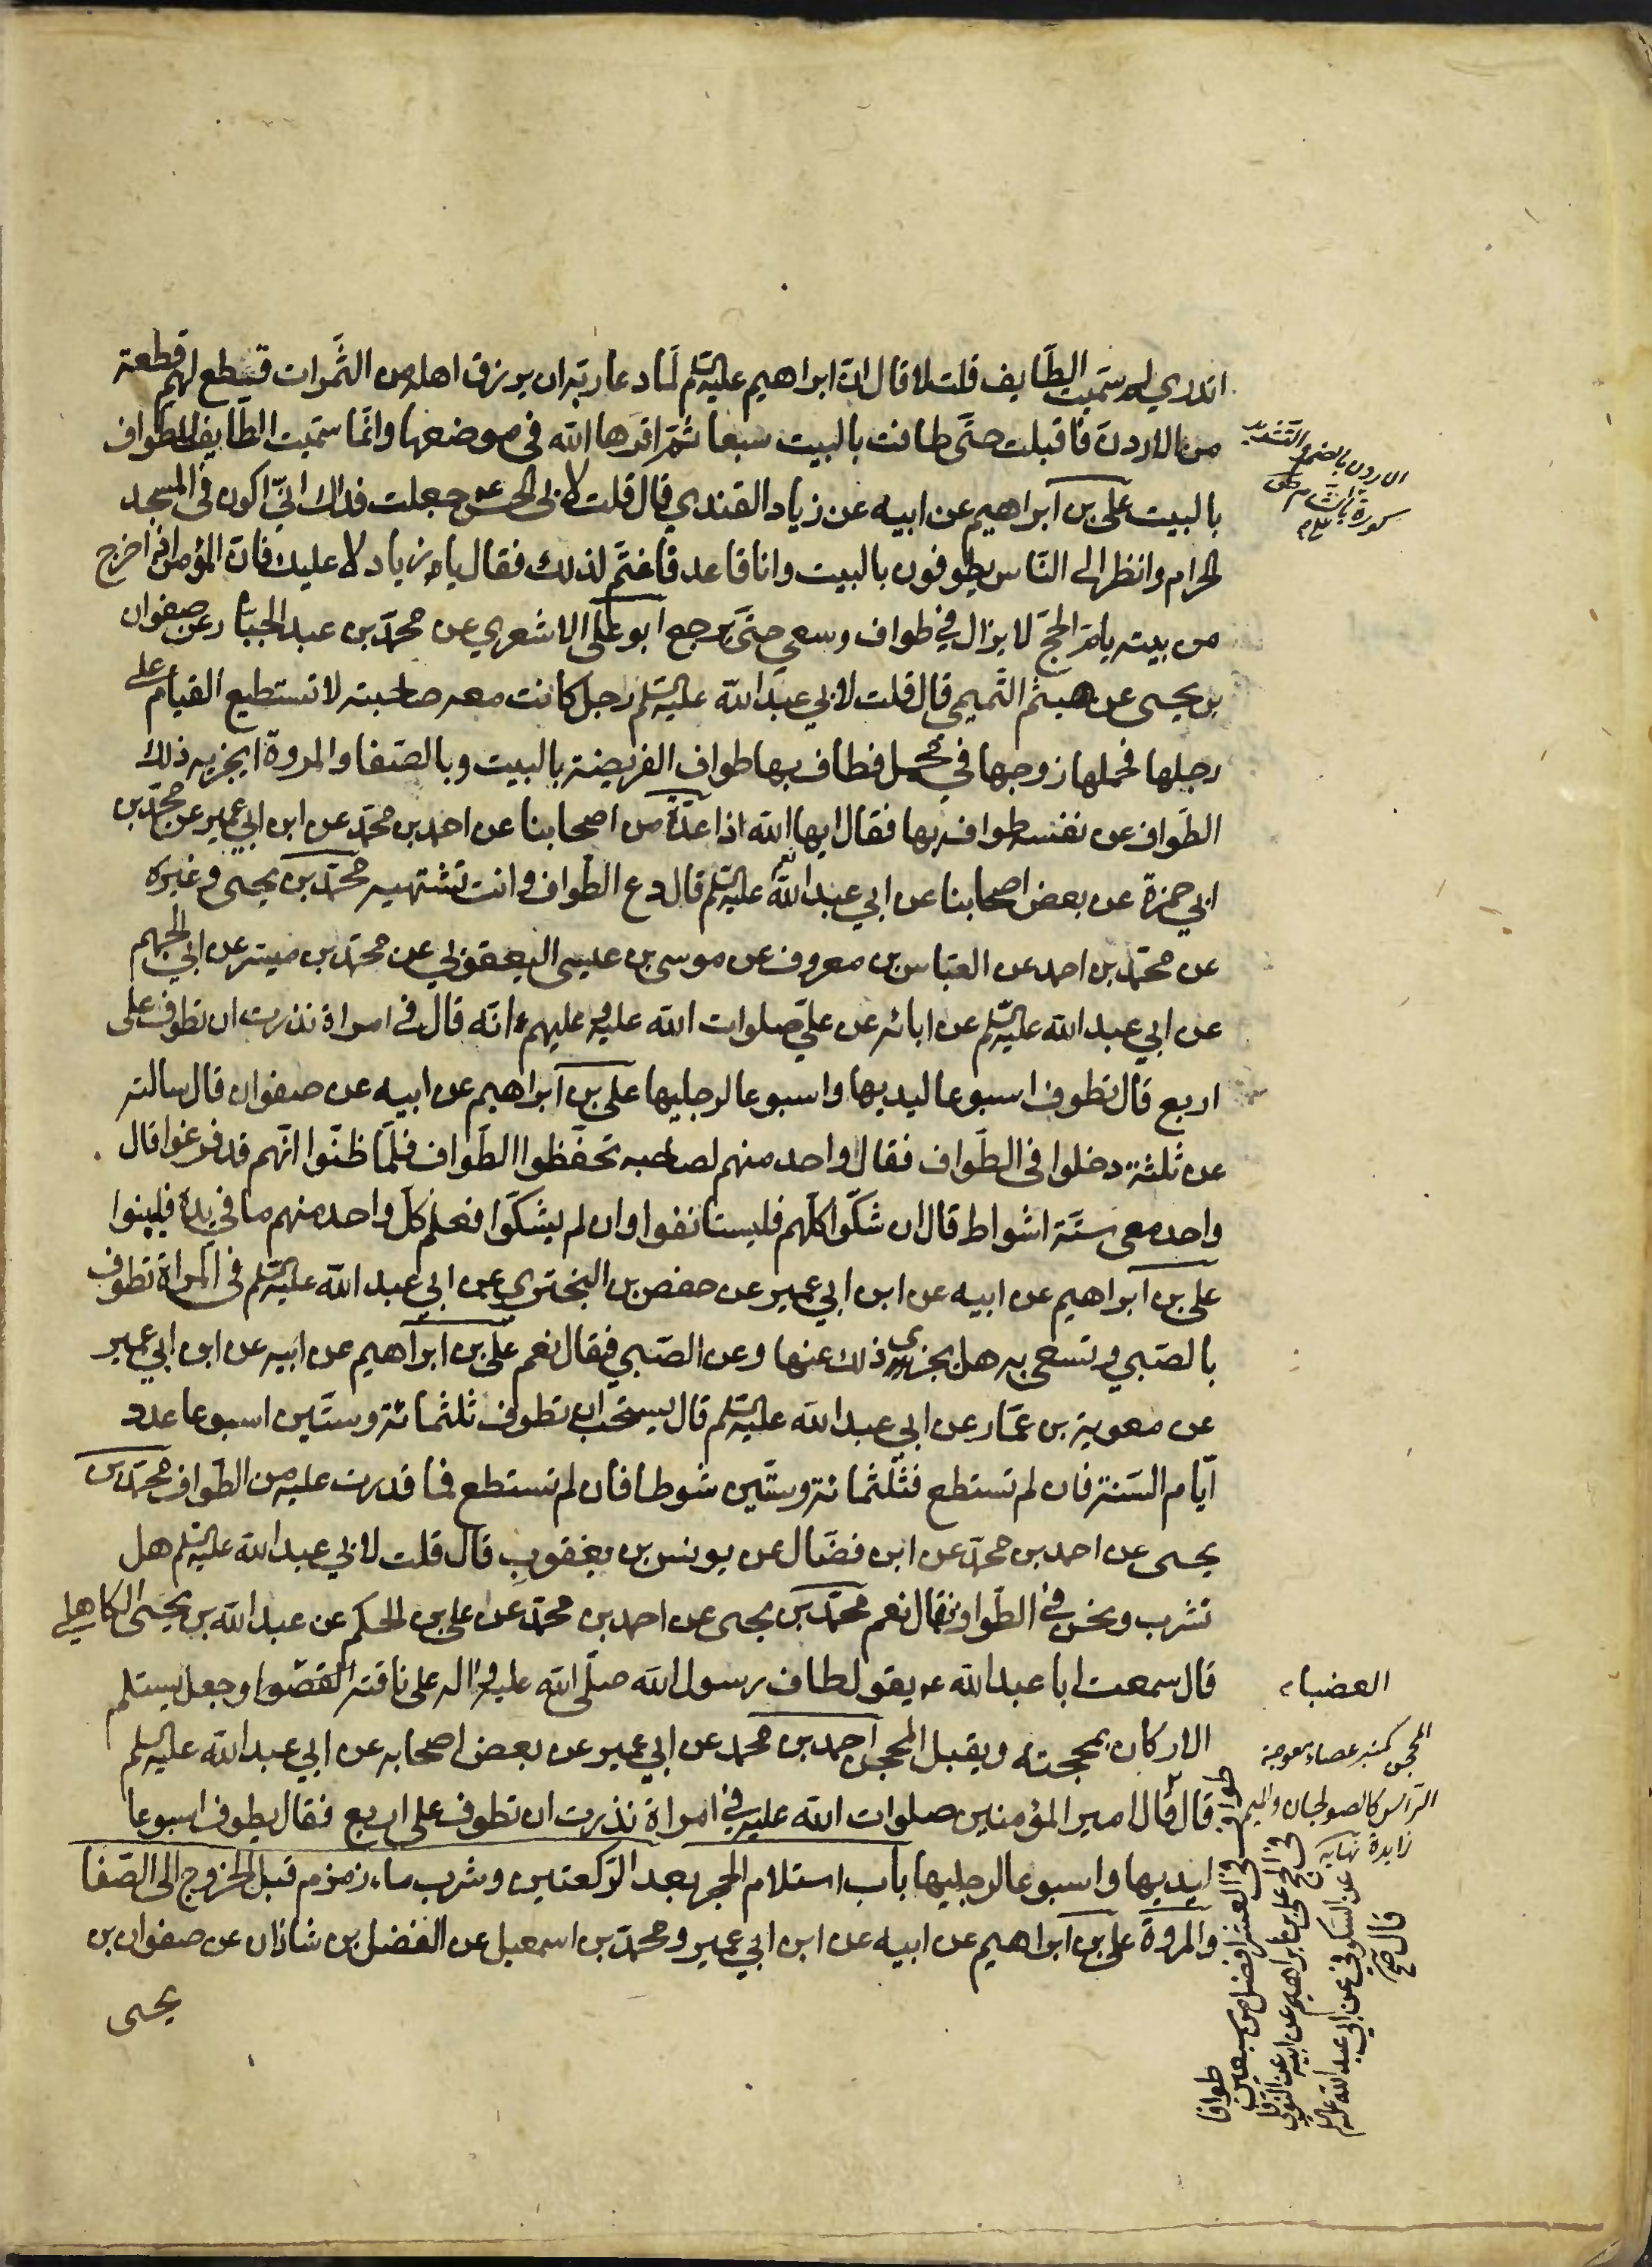 اتدري لم سميت الطايف قلت لا قال ان ابراهيم عليه السلم لما دعا ربه ان يرزق اهله من الثمرات قطع لهم قطعة
من الاردن فاقبلت حتى طافت بالبيت سبعا ثم اقرها الله في موضعها وانما سميت الطايف للطواف
بالبيت علي بن ابراهيم عن ابيه عن زياد القندي قال قلت لابي الحسن ع جعلت فداك اني اكون في المسجد
الحرام وانظر الى الناس يطوفون بالبيت وانا قاعد فاغتم لذلك فقال يا زياد لا عليك فان المؤمن اذا خرج
من بيته يام الحج لا يزال في طواف وسعي حتى يرجع ابو علي الاشعري عن محمد بن عبد الجبار عن صفوان
بن يحيى عن هيثم التميمي قال قلت لابي عبد الله عليه السلم رجل كانت معه صاحبته لا تستطيع القيام على
رجلها فحملها زوجها في محمل فطاف بها طواف الفريضة بالبيت وبالصفا والمروة ايجزيه ذلك
الطواف عن نفسه طوافه بها فقال ايها الله اذا عدة من اصحابنا عن احمد بن محمد عن ابن ابي عمير عن محمد بن
ابي حمزة عن بعض اصحابنا عن ابي عبد الله عليه السلم قال دع الطواف وانت تشتهيه محمد بن يحيى وغيره
عن محمد بن احمد عن العباس بن معروف عن موسى بن عيسى اليعقوبي عن محمد بن ميسر عن ابي الجهم
عن ابي عبد الله عليه السلم عن ابائه عن علي صلوات الله عليه وعليهم انه قال في امراة نذرت ان تطوف على
اربع قال تطوف اسبوعا ليديها واسبوعا لرجليها علي بن ابراهيم عن ابيه عن صفوان قال سالته
عن ثلثة دخلوا في الطواف فقال واحد منهم لصاحبه تحفظوا الطواف فلما ظنوا انهم قد فرغوا قال
واحد معي ستة اشواط قال ان شكوا كلهم فليستانفوا وان لم يشكوا فعلم كل واحد منهم ما في يده فليبنوا
علي بن ابراهيم عن ابيه عن ابن ابي عمير عن حفص بن البختري عن ابي عبد الله عليه السلم في المراة تطوف
بالصبي وتسعى به هل يجزي ذلك عنها وعن الصبي فقال نعم علي بن ابراهيم عن ابيه عن ابن ابي عمير
عن معوية بن عمار عن ابي عبد الله عليه السلم قال يستحب ان تطوف ثلثمائة وستين اسبوعا عدد
ايام السنة فان لم تستطع فثلثمائة وستين شوطا فان لم تستطع فما قدرت عليه من الطواف محمد بن
يحيى عن احمد بن محمد عن ابن فضال عن يونس بن يعقوب قال قلت لابي عبد الله عليه السلم هل
نشرب ونحن في الطواف فقال نعم محمد بن يحيى عن احمد بن محمد عن علي بن الحكم عن عبد الله بن يحيى الكاهلي
قال سمعت ابا عبد الله ع يقول طاف رسول الله صلى الله عليه واله على ناقته القصوا وجعل يستلم
الاركان بمحجنه ويقبل المحجن احمد بن محمد عن ابي عمير عن بعض اصحابه عن ابي عبد الله عليه السلم
قال قال امير المؤمنين صلوات الله عليه في امراة نذرت ان تطوف على اربع فقال يطوف اسبوعا
ليديها واسبوعا لرجليها باب استلام الحجر بعد الركعتين وشرب ماء زمزم قبل الخروج الى الصفا
والمروة علي بن ابراهيم عن ابيه عن ابن ابي عمير ومحمد بن اسمعيل عن الفضل بن شاذان عن صفوان بن
يحيى
الاردن بالضم والتشديد
كورة بالشام
العضباء
المحجن كمنبر عصاء معوجة
الراس كالصولجان والميم
زايدة نهايه
علي بن ابراهيم عن ابيه عن النوفلي
عن السكوني عن ابي عبد الله عليه السلم
قال
طواف
في العشر افضل من سبعين
طوافا
في الحج